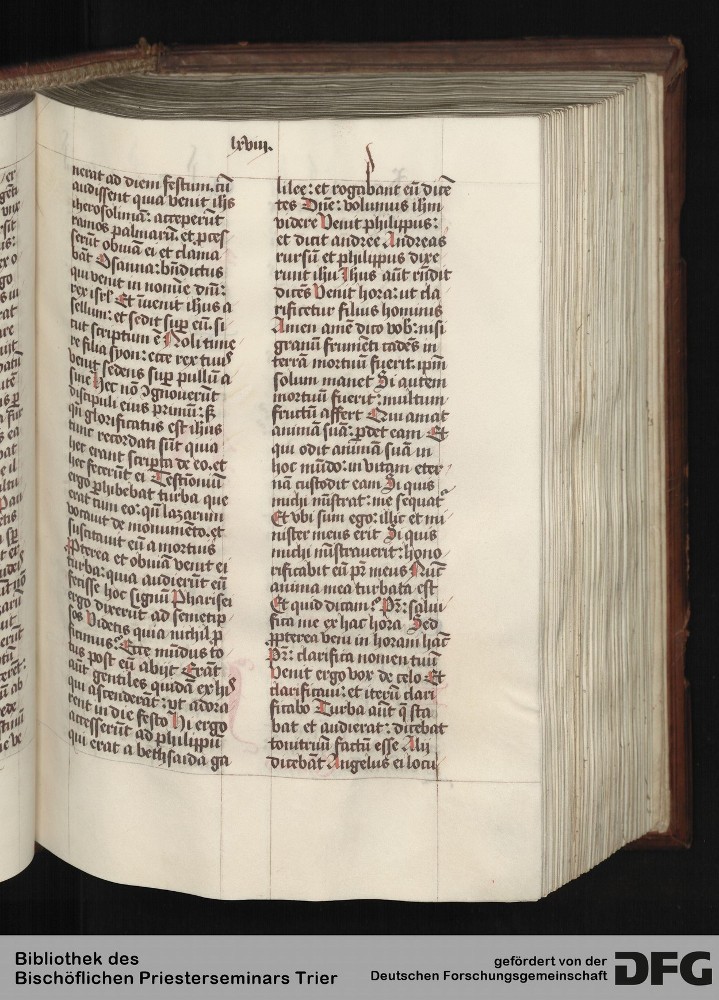 lxviii.
nerat ad diem festum. cū
audissent quia venit ihs
iherosolimā: acceperūt
ramos palmarū. et p̄ces
serūt obuiā ei et clama
bāt Osanna: bn̄dictus
qui venit in nomīe dn̄i:
rex isrl̄ Et īuenit ihus a
sellum: et sedit suꝑ eū. si
cut scriptum ē Noli time
re filia syon: ecce rex tuus
venit sedens suꝑ pullū a
sine Hec nō ꝯgnouerūt
discipuli eius primū: sꝫ
qn̄ glorificatus est ihus
tunc recordati sūt quia
hec erant scripta de eo. et
hec fecerūt ei Testīoniū
ergo ꝑhibebat turba que
erat cum eo: qn̄ lazarum
vocauit de monumēto. et
suscitauit eū a mortuis
ꝓpterea et obuiā venit ei
turba: quia audierūt eū
fecisse hoc signū Pharisei
ergo dixerūt ad semetip
sos Videtis quia nichil ꝓ
ficimus? Ecce mūdus to
tus post eū abijt Erāt
aūt gentiles quidā ex hijs
qui ascenderāt: vt adora
rent in die festo Hi ergo
accesserūt ad philippū
qui erat a bethsaida ga
lilee: et rogabant eū dicē
tes Dn̄e: volumus ihm
videre Venit philippus:
et dicit andree Andreas
rursū et philippus dixe
runt ihu Ihus aūt rn̄dit
dicēs Venit hora: ut cla
rificetur filius hominis
Amen amē dico vob̄: nisi
granū frumēti cadēs in
terrā mortuū fuerit. ipm̄
solum manet Si autem
mortuū fuerit: multum
fructū affert Qui amat
animā suā: ꝑdet eam Et
qui odit animā suā in
hoc mūdo: in vitam eter
nā custodit eam Si quis
michi mīstrat: me sequat᷑
Et vbi sum ego: illic et mi
nister meus erit Si quis
michi mīstrauerit: hono
rificabit eū pr̄ meus Nūc
anima mea turbata est
Et quid dicam? Pr̄: salui
fica me ex hac hora Sed
ꝓpterea veni in horam hāc
Pr̄: clarifica nomen tuū
Venit ergo vox de celo Et
clarificaui: et iterū clari
ficabo Turba aūt q̄ sta
bat et audierat: dicebat
tonitruū factū esse Alij
dicebāt Angelus ei locu
Bibliothek des
Bischöflichen Priesterseminars Trier
gefördert von der
Deutschen Forschungsgemeinschaft
DFG